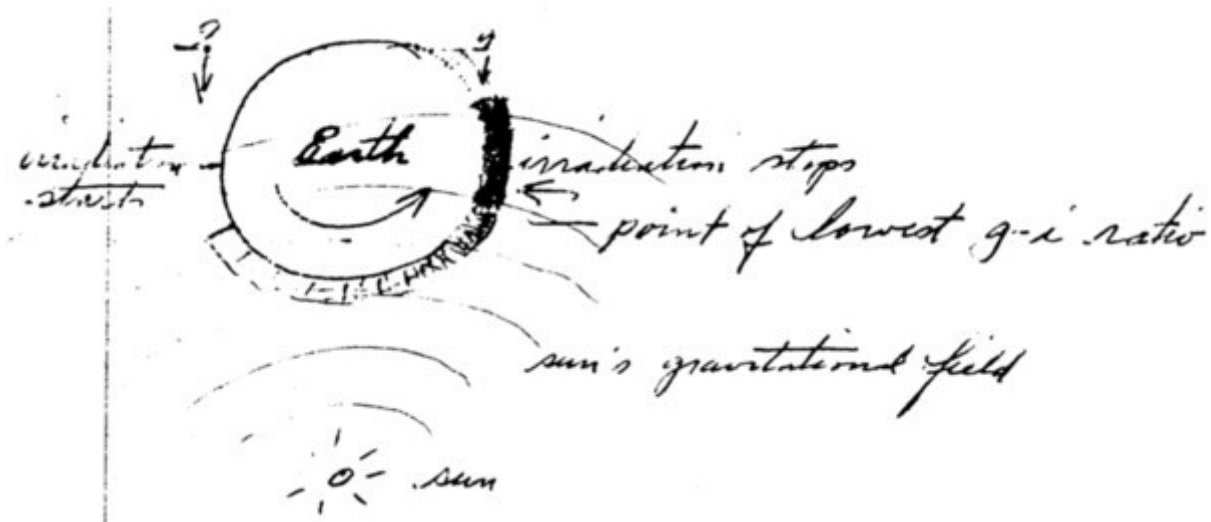 Earth
irradiation starts
irradiation stops
point of lowest g-i ratio
sun's gravitational field
sun